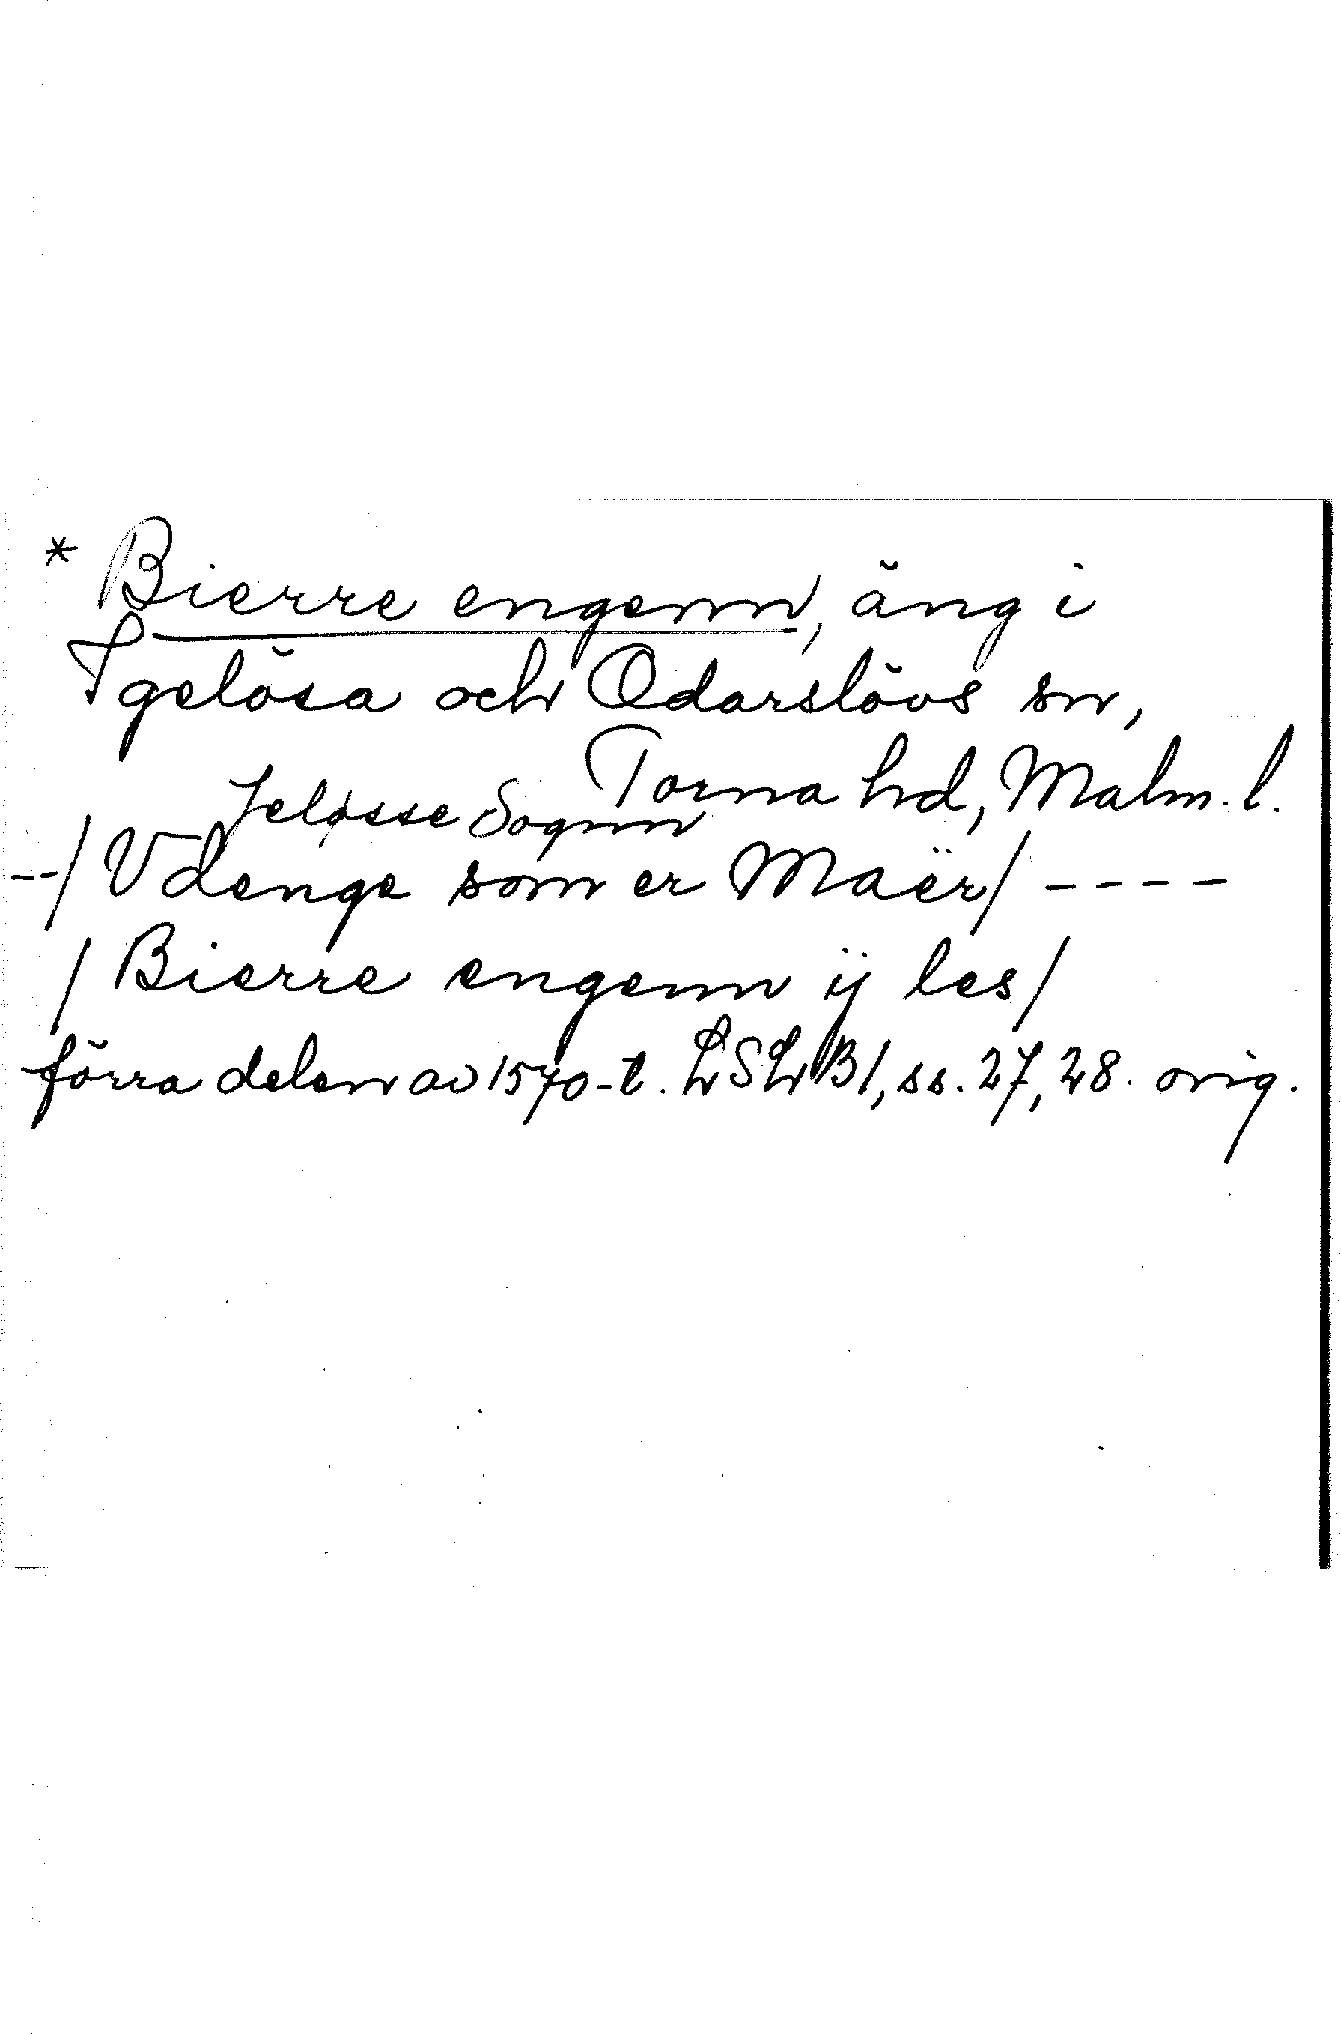 * Bierre engenn, äng i
Igelösa och Odarslövs sn,
Torna hd, Malm. l.
Jeløsse Sognn
--/ Vdenge som er Maër/ ----
/ Bierre engenn ij les/
förra delen av 1570-t. LSLB1, ss. 27, 28. orig.